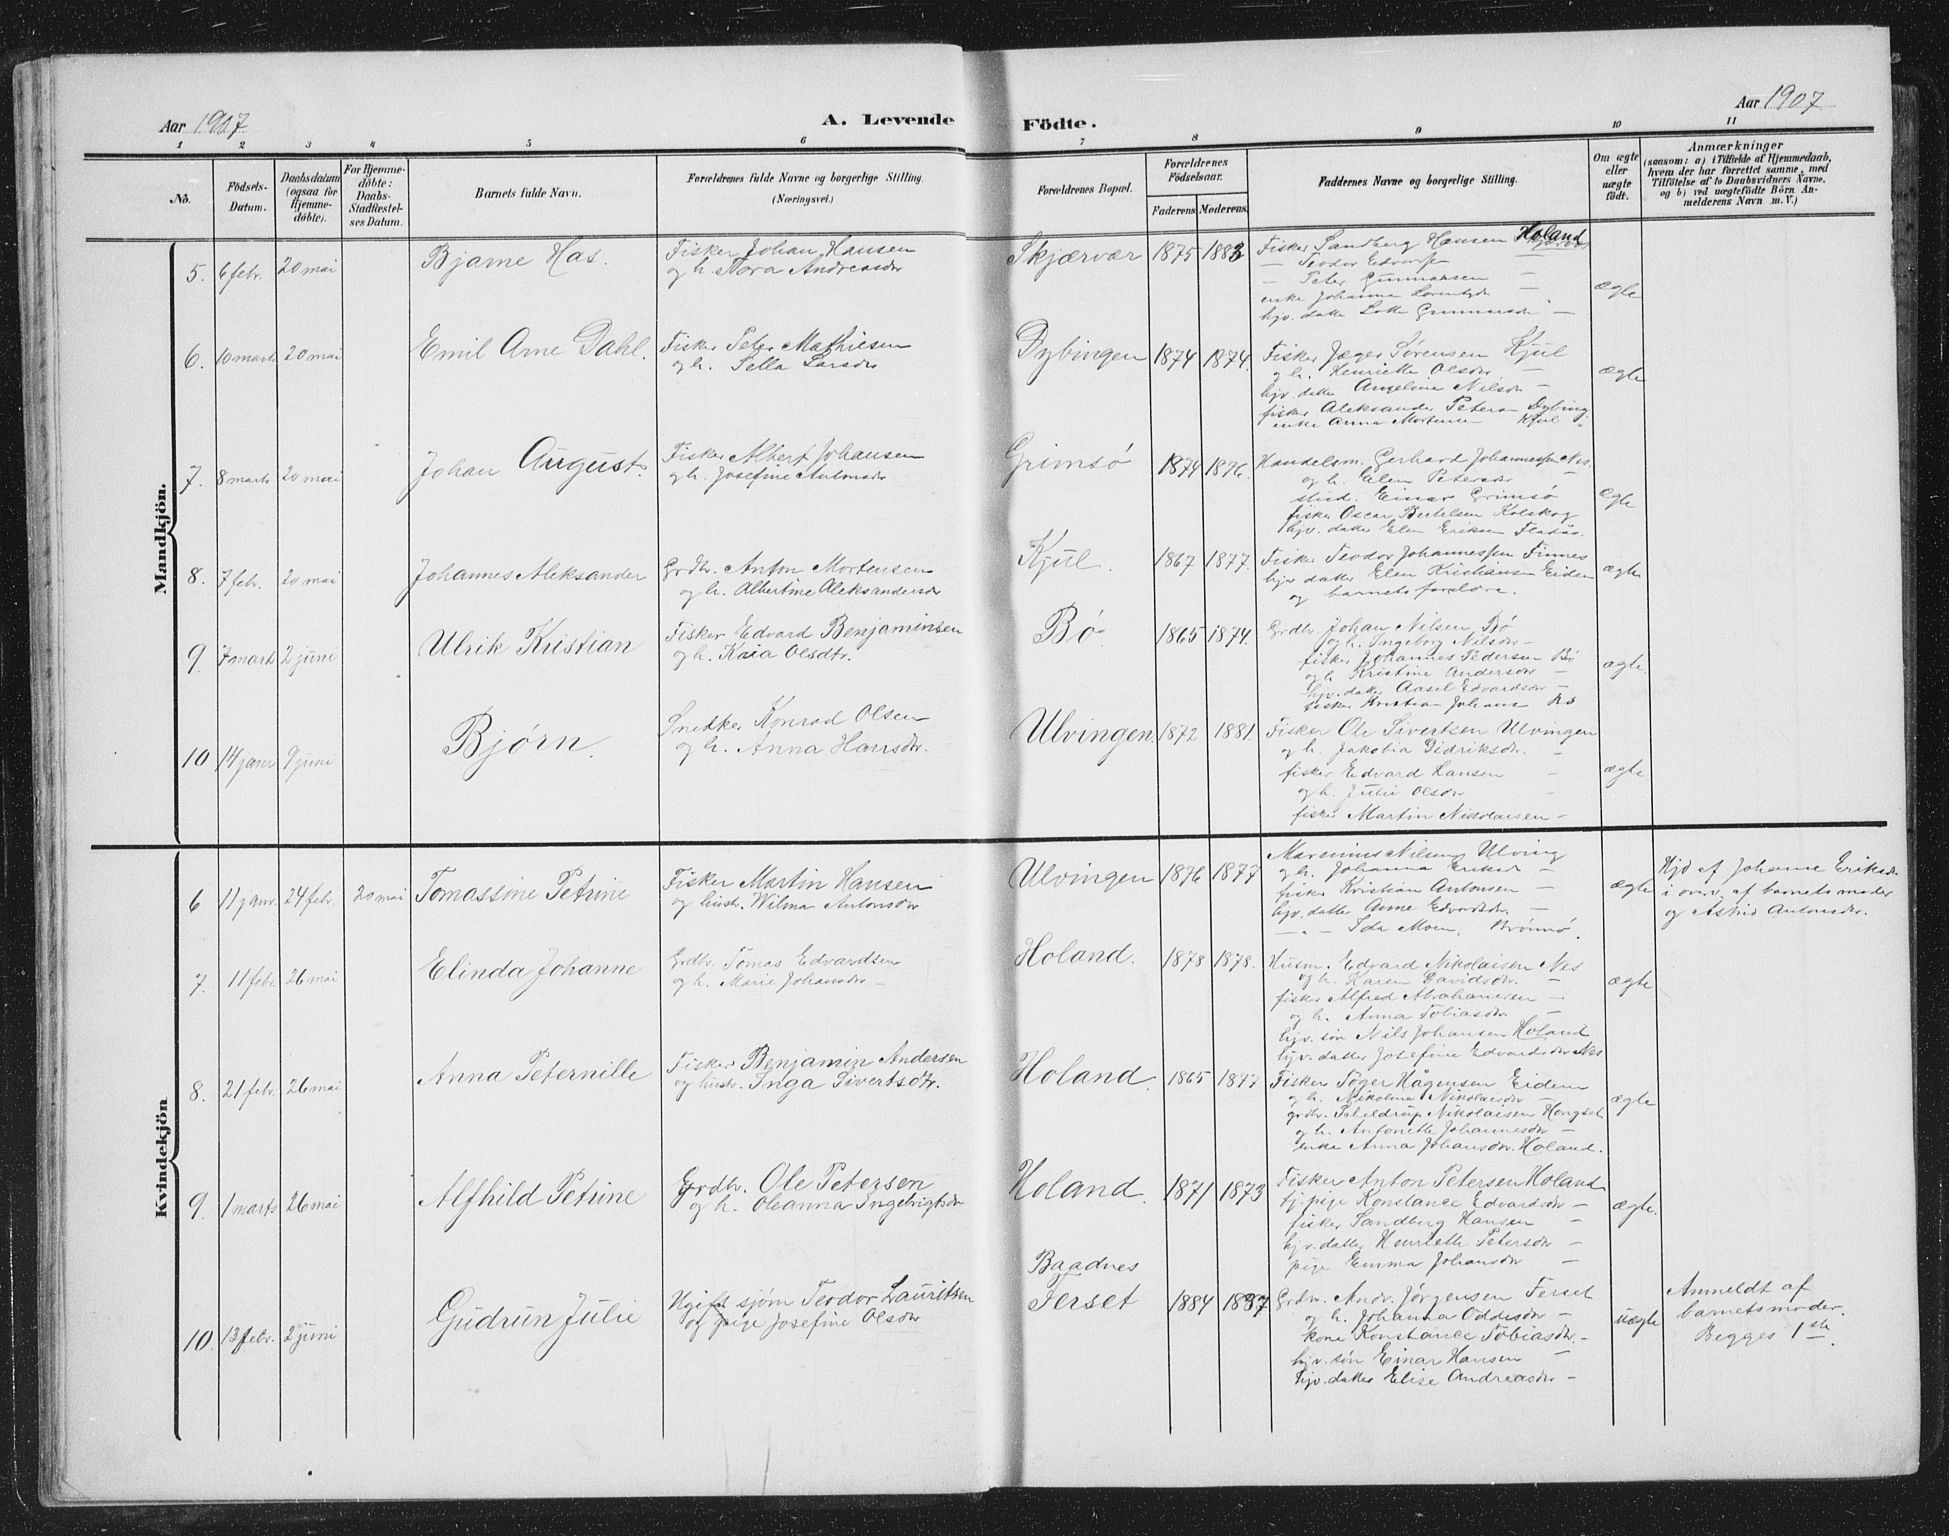 Aar 1907
A. Levende Födte.
Aar 1907
1 2 3 4 5 6 7 8 9 10 11
No.
Födsels-Datum.
Daabsdatum (ogsaa for Hjemme-døbte).
For Hjemme-døbte: Daabs-Stadfæstel-ses Datum.
Barnets fulde Navn.
Forældrenes fulde Navne og borgerlige Stilling.
(Næringsvei.)
Forældrenes Bopæl.
Forældrenes Födselsaar.
Faderens. Moderens.
Faddernes Navne og borgerlige Stilling.
Om ægte eller uægte födt.
Anmærkninger
(saasom: a) i Tilfælde af Hjemmedaab, hvem der har forrettet samme, med Tilföielse af to Daabsvidners Navne, og b) ved uægtefödte Börn Anmelderens Navn m. V.)
Mandkjön.
5. 6 febr. 20 mai Bjarne Has.
Fisker Johan Hansen
og h. Nora Andreasdtr
Skjærvær 1875 1883
Fisker Sandberg Hansen Holand
— Teodor
— Peter Gunnarsen —
enke Johanna
hjv. datter Lotte
ægte
6. 10 marts 20 mai Emil Arne Dahl.
Fisker Peter Mathiesen
og h. Sella Larsdtr
Dybingen 1874 1874.
Fisker Jæger Sørensen Kjul
og h. Henriette Olsdtr —
hjv. datter Angeline Nilsdtr —
fisker Aleksander Peters Dybing.
enke Anna Mortens Kjul
ægte
7. 8 marts 20 mai Johan August
Fisker Albert Johansen
og h. Josefine Antonsdtr
Grimsø 1874 1876.
Handelsm. Gerhard Johannessen Nes.
og h. Elen Petersdtr
stud. Einar Grimsø
fisker Oscar Bertelsen Kolskog
hjv. datter Elen Eriksen
ægte
8. 7 febr. 20 mai Johannes Aleksander
Grdbr. Anton Mortensen
og h. Albertine Aleksandersdtr
Kjul. 1867 1877.
Fisker Teodor Johannessen Finnes
hjv datter Elen Kristiansen Eiden
og barnets forældre.
ægte
9. 7 marts 2 juni Ulrik Kristian
Fisker Edvard Benjaminsen
og h. Kaia Olsdtr.
Bø 1865 1874.
Grdbr. Johan Nilsen, Bø
og h. Ingeborg Nilsdtr —
fisker Johannes Pedersen Bø
og h. Kristine Andersdtr —
hjv. datter Aasel Edvardsdtr —
fisker Kristian Johans Bø
ægte
10 14 janr 9 juni Bjørn.
Snedker Konrad Olsen
og h. Anna Hansdtr.
Ulvingen 1872 1881.
Fisker Ole Sivertsen Ulvingen
og h. Jakobia Didriksdtr. —
fisker Edvard Hansen —
og h. Julie Olsdtr —
fisker Martin Nikolaisen —
ægte
Kvindekjön
6 11 janr. 24 febr. 20 mai Tomassine Petrine
Fisker Martin Hansen
og hustr. Wilma Antonsdtr
Ulvingen 1876 1877
Marsinius Nilsen, Ulving
og h. Johanna Eriksdtr —
fisker Kristian Antonsen —
hjv. datter Anne Edvardsdtr —
— " — Ida Moen, Brønnø.
ægte
Hjd af Johanne Eriksdtr
i overv. af barnets moder
og Astrid Antonsdtr.
7. 11 febr. 26 mai Elinda Johanne
Grdbr. Tomas Edvardsen
og h. Marie Johansdtr —
Holand. 1878 1878.
Husm. Edvard Nikolaisen Nes
og h. Karen Davidsdtr. —
fisker Alfred Abrahamsen —
og h. Anna Tobiasdtr —
hjv. søn Nils Johansen Holand
hjv. datter Josefine Edvardsdtr Nes
ægte
8. 21 febr. 26 mai Anna Peternille
Fisker Benjamin Andersen
og hustr. Inga Sivertsdtr.
Holand. 1865 1877
Fisker Toger Hågensen Eidem
og h. Nikoline Nikolaisdtr —
grdbr. Peteldrup Nikolaisen Hongset
og h. Antonette Johannesdtr —
enke Anna Johansdtr. Holand.
ægte
9. 1 marts 26 mai Alfhild Petrine
Grdbr. Ole Petersen
og h. Oleanna Ingebrigtsdtr
Holand. 1871 1873
Fisker Anton Petersen Holand
tj. pige Konstance Edvardsdtr —
fisker Sandberg Hansen —
hjv. datter Henriette Petersdtr —
pige Emma Johansdtr —
ægte.
10. 13 febr. 2 juni Gudrun Julie
Ugift sjøm Teodor Lauritsen
og pige Josefine Olsdtr
Baadnes
Terset 1884 1887
Grdbr. Andr. Jørgensen Terset
og h. Johanna Oddesdtr —
kone Konstance Tobiasdtr. —
hjv. søn Einar Hansen —
hjv. datter Elise Andreasdtr —
uægte
Anmeldt af
barnets moder.
Begges 1ste.